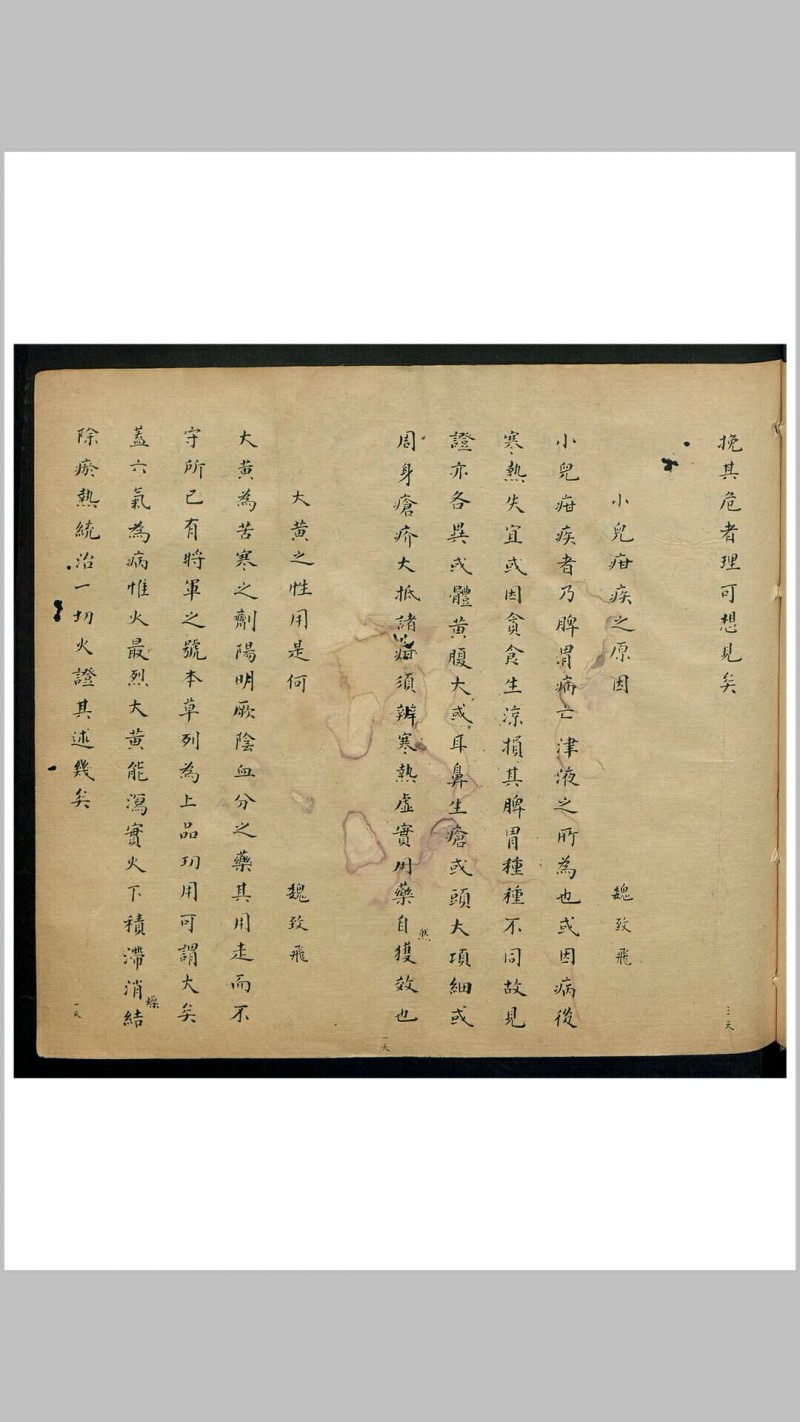 挽其危者理可想見矣
三天
小兒疳疾之原因 魏致飛
小兒疳疾者乃脾胃病亡津液之所為也或因病後
寒熱失宜或因貪食生涼損其脾胃種種不同故見
證亦各異或體黃腹大或耳鼻生瘡或頭大項細或
周身瘡疥大抵諸疳須辨寒熱虛實用藥自獲效也
然
一天
大黃之性用是何 魏致飛
大黃為苦寒之劑陽明厥陰血分之藥其用走而不
守所已有將軍之號本草列為上品功用可謂大矣
蓋六氣為病惟火最烈大黃能瀉實火下積滯消結
燥
除瘀熱統治一切火證其述幾矣
一天